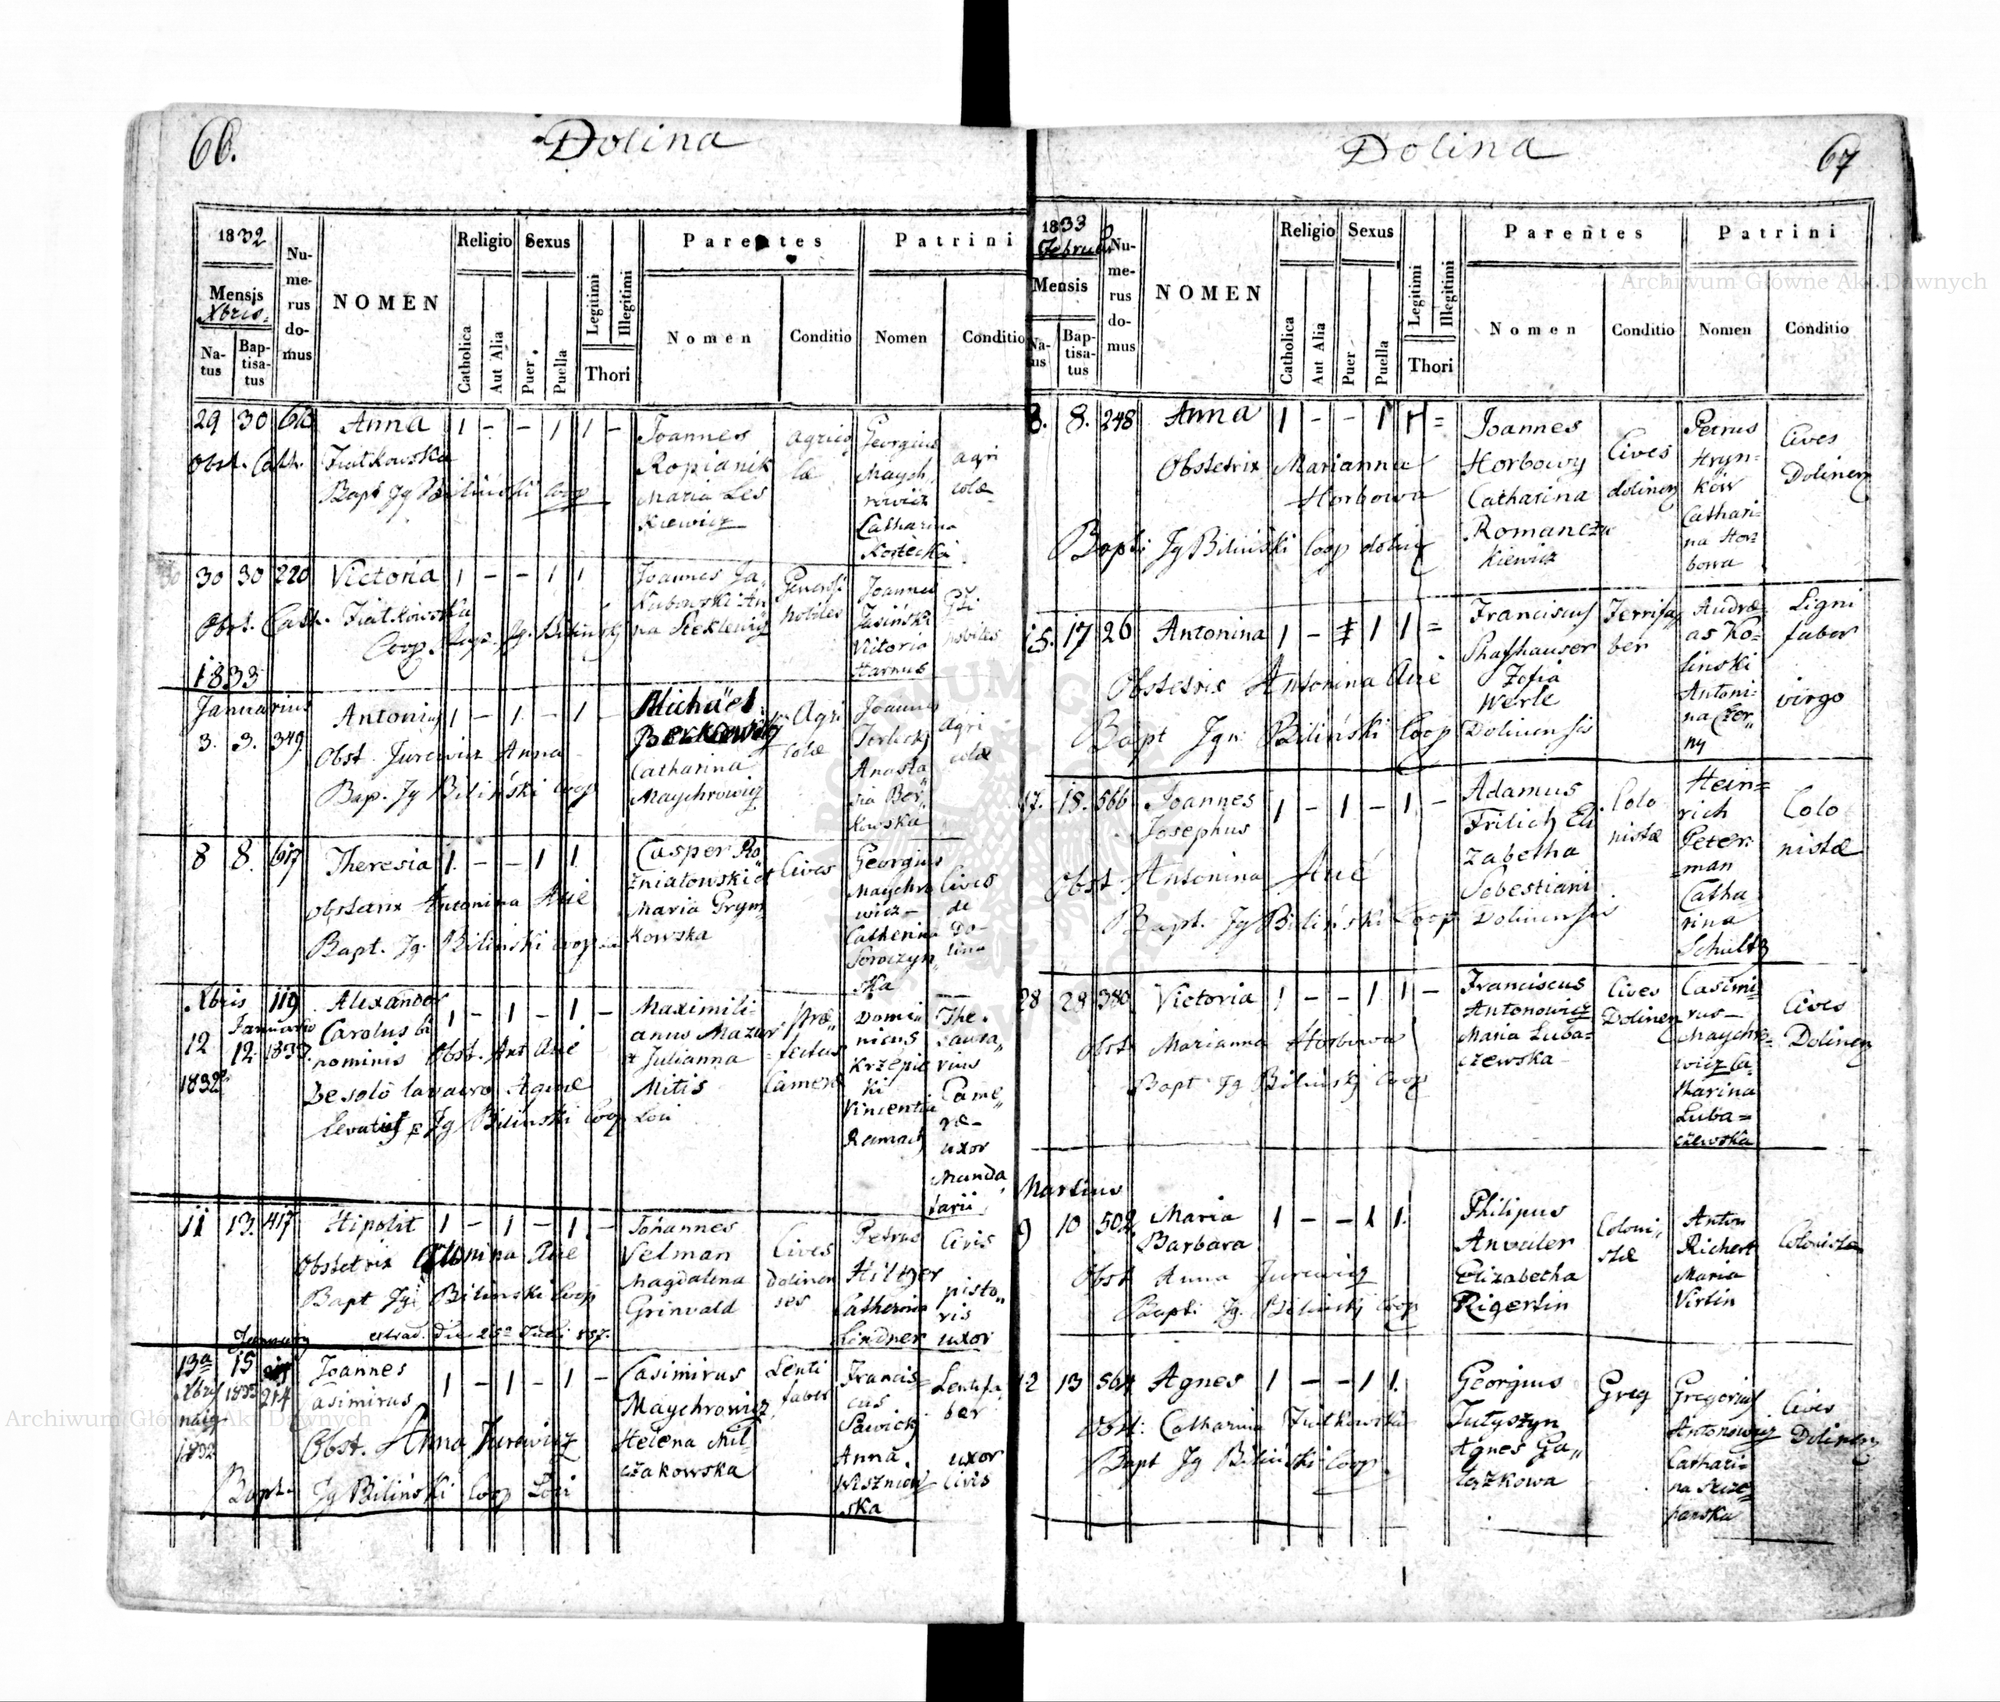 66.
Dolina
1832
Mensis
Xbris.
Na-
tus
Bap-
tisa-
tus
Nu-
me-
rus
do-
mus
NOMEN
Religio
Catholica
Aut Alia
Sexus
Puer
Puella
Legitimi
Illegitimi
Thori
Parentes
Nomen
Conditio
Patrini
Nomen
Conditio
29 30 Anna 1 - - 1 1 -
Obst. Cath. Fiatkowska
Bapt Jg Biliński Coop
Joannes
Ropianik
Maria Les
kiewicz
agrico
læ
Georgius
Maych
rowicz
Catharina
Kostecka
agri
colæ
30 30 220 Victoria 1 - - 1 1
Obst. Cath. Fiatkowska
Coop Bapt. Jg. Biliński
Joannes Ja
kubowski An
na Steklewicz
nobiles
Joannes
Jasiński
Victoria
Harnus
nobiles
1833
Januarius
3. 3. 349 Antonius 1 - 1 - 1 -
Obst. Jurewicz Anna
Bap. Jg Biliński Coop
Michaël
Berkowski
Catharina
Maychrowicz
Agri
colæ
Joannes
Terlecki
Anasta
sia Ber„
kowska
Agri
colæ
8 8. 617 Theresia 1. - - 1 1
obstetrix Antonina Aué
Bapt. Jg. Biliński Coop
Casper Ro
żniatowski et
Maria Grym
kowska
Cives
Georgius
Maychro
wicz -
Catherina
Soroczyn„
ska
Cives
de
Do-
lina
Xbris 119 Alexander
12 Januario Carolus bi 1 - 1 - 1 -
12. 1833. nominis Obst. Ant Aué
1832 De solo lavacro Aquæ
Levatus Jg Biliński Coop
Maximili-
anus Mazur
& Julianna
Mitis
Lori
Præ„
fectus
Cameræ
Domi
nicus
Krzepic
ki
Vincentia
The„
saura„
rius
Came„
ræ -
uxor
Manda„
tarii
11 13. 417 Hipolit 1 - 1 - 1. -
Obstetrix Antonina Aué
Bapt Jg Biliński Coop
extrad. die 25a Julii 857.
Johannes
Velman
Magdalena
Grinvald
Cives
Dolinen
ses
Petrus
Hiltzer
Catherina
Lindner
Civis
pisto„
ris
uxor
January
13a 15 Joannes
Xbris 1833 214 Casimirus 1 - 1 - 1 -
1832
Obst. Anna Jurewicz
Bapt. Jg Biliński Coop Lori
Casimirus
Maychrowicz
Helena Mil
czakowska
Lenti
faber
Francis-
cus
Sawicki
Anna
Wiszniow
ska
Lentifa„
ber
uxor
Civis
Dolina
67
1833
Februar
Mensis
Na-
tus
Bap-
tisa-
tus
Nu-
me-
rus
do-
mus
NOMEN
Religio
Catholica
Aut Alia
Sexus
Puer
Puella
Legitimi
Illegitimi
Thori
Parentes
Nomen
Conditio
Patrini
Nomen
Conditio
8. 8. 248 Anna 1 - - 1 1 =
Obstetrix Marianna
Horbowa
Bapti Jg Biliński Coop dolin
Joannes
Horbowy
Catharina
Romancza
kiewicz
Cives
dolinen
Petrus
Hryn=
ków
Cathari-
na Hor-
bowa
Cives
Dolinen
15. 17 26 Antonina 1 - 1 1 =
Obstetrix Antonina Aué
Bapt Jgn: Biliński Coop
Franciscus
Shafhauser
Zofia
Werle
Dolinensis
Ferrifa
ber
Andre-
as Ko-
sinski
Antoni-
na Czer„
ny
Ligni
faber
virgo
17. 18. 566 Joannes 1 - 1 - 1 -
Josephus
Obst Antonina Aué
Bapt. Jg Biliński Coop
Adamus
Frilich Eli
zabetha
Sebestiani
Dolinensis
Colo
nistæ
Hein=
rich
Peter-
man
Catha
rina
Schultz
Colo
nistæ
28 28 380 Victoria 1 - - 1 1 -
Obst Marianna Horbowa
Bapt Jg Biliński Coop
Franciscus
Antonowicz
Maria Luba=
czewska
Cives
Dolinen
Casimi-
rus -
Maychro-
wicz Ca-
tharina
Luba=
czewska
Cives
Dolinen
Martius
9 10 502 Maria 1 - - 1 1.
Barbara
Obst Anna Jurewicz
Bapti Jg. Biliński Coop
Philipus
Anveiler
Elizabetha
Rigertin
Coloni„
stæ
Anton
Richert
Maria
Virtin
Colonistæ
12 13 564 Agnes 1 - - 1 1.
Obst: Catharina Fiatkowska
Bapt Jg Biliński Coop
Georgius
Tutyszyn
Agnes Ga„
łązkowa
Greg
Gregorius
Antonowicz
Cathari-
na Szcze-
pańska
Cives
Dolinen
Archiwum Główne Akt Dawnych
Archiwum Główne Akt Dawnych